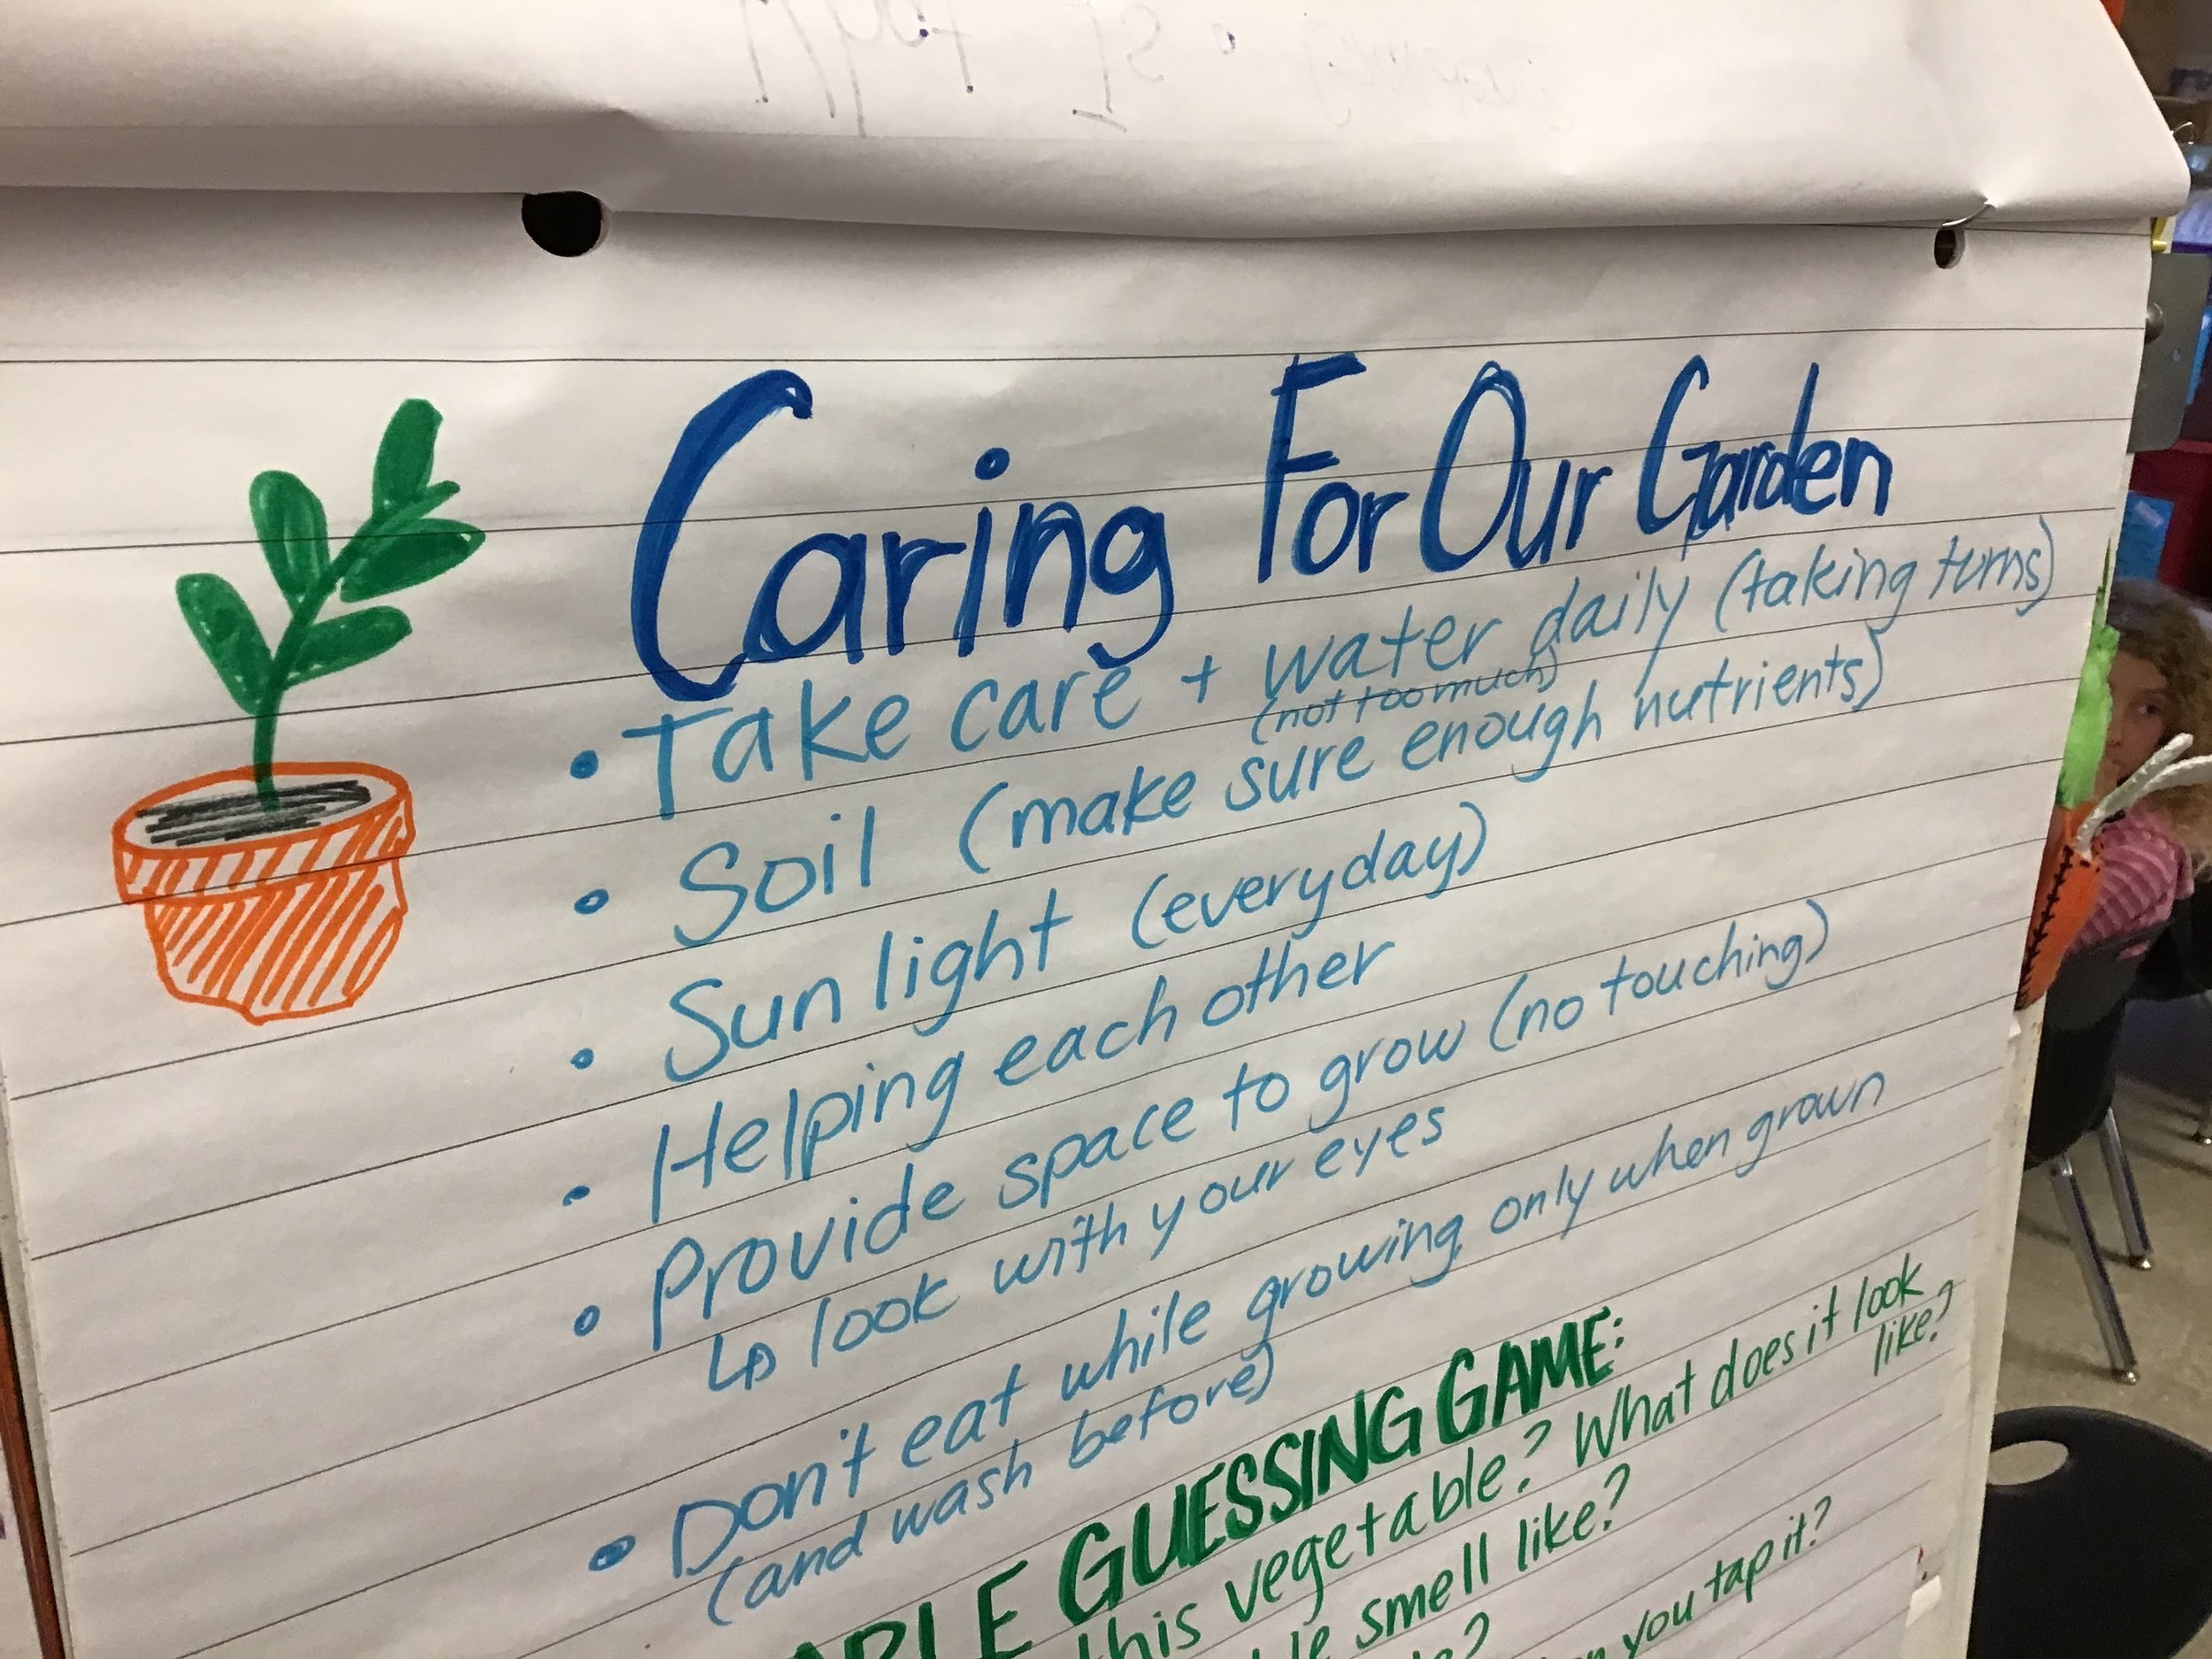 Caring For Our Garden
• Take care + water daily (taking turns)
(not too much)
• Soil (make sure enough nutrients)
• Sunlight (everyday)
• Helping each other
• Provide space to grow (no touching)
↳ look with your eyes
• Don't eat while growing only when grown
(and wash before)
GUESSING GAME:
this vegetable? What does it look
like?
smell like?
you tap it?